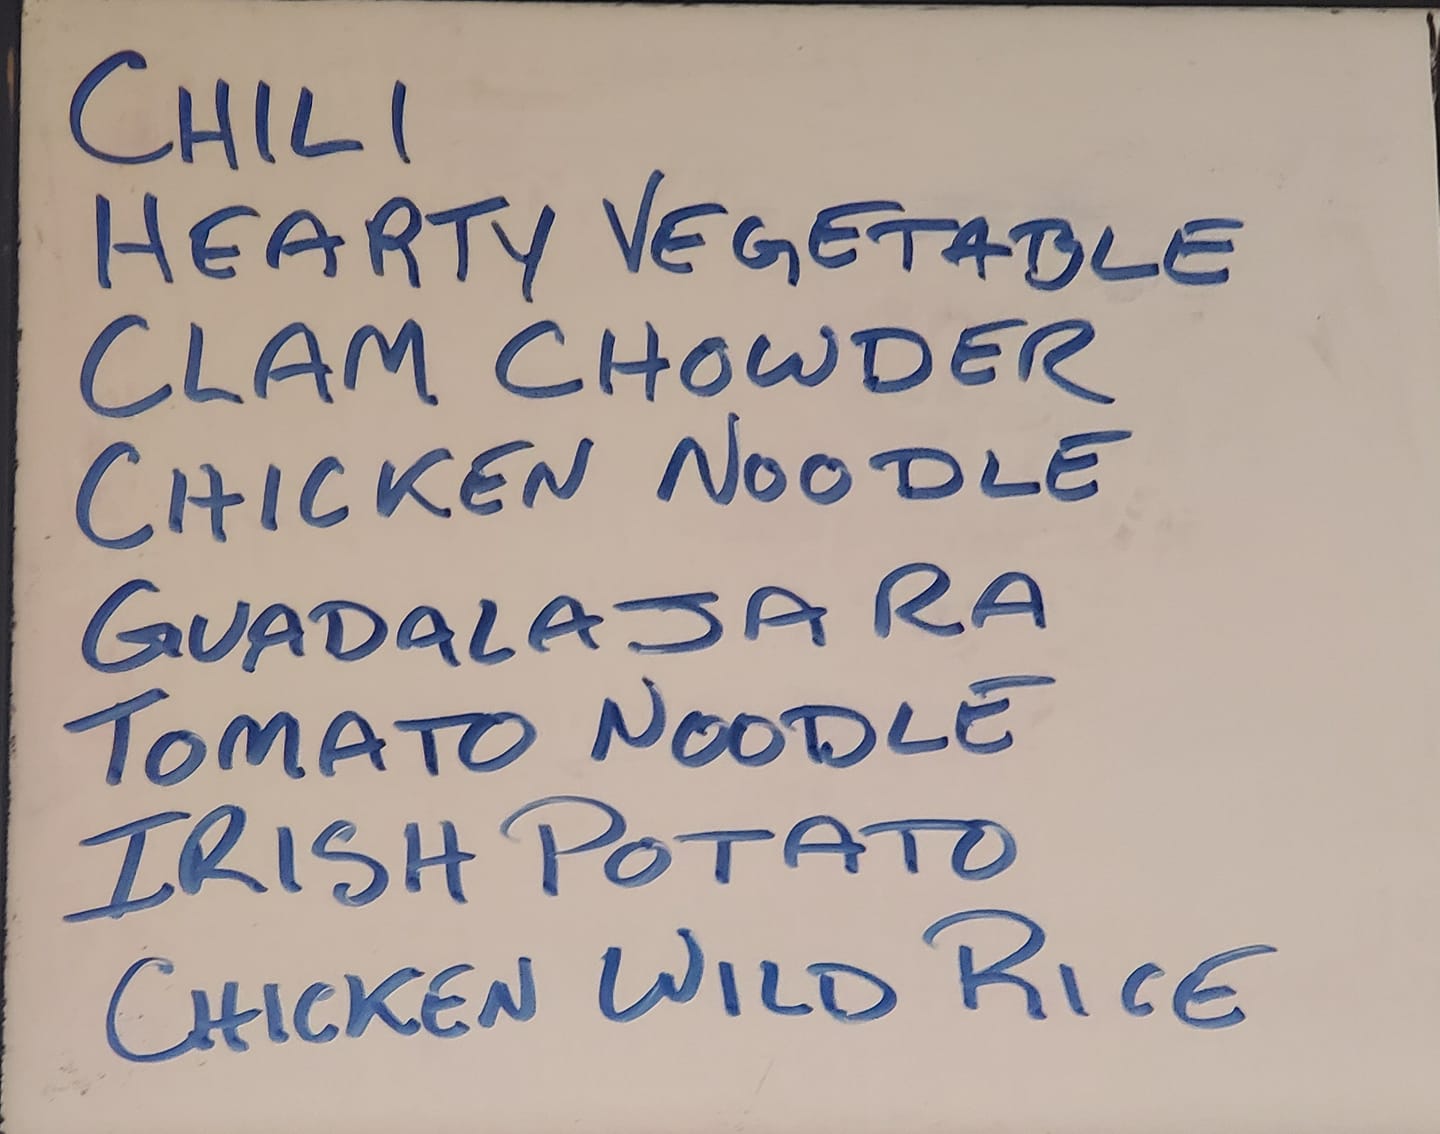 CHILI
HEARTY VEGETABLE
CLAM CHOWDER
CHICKEN NOODLE
GUADALAJARA
TOMATO NOODLE
IRISH POTATO
CHICKEN WILD RICE